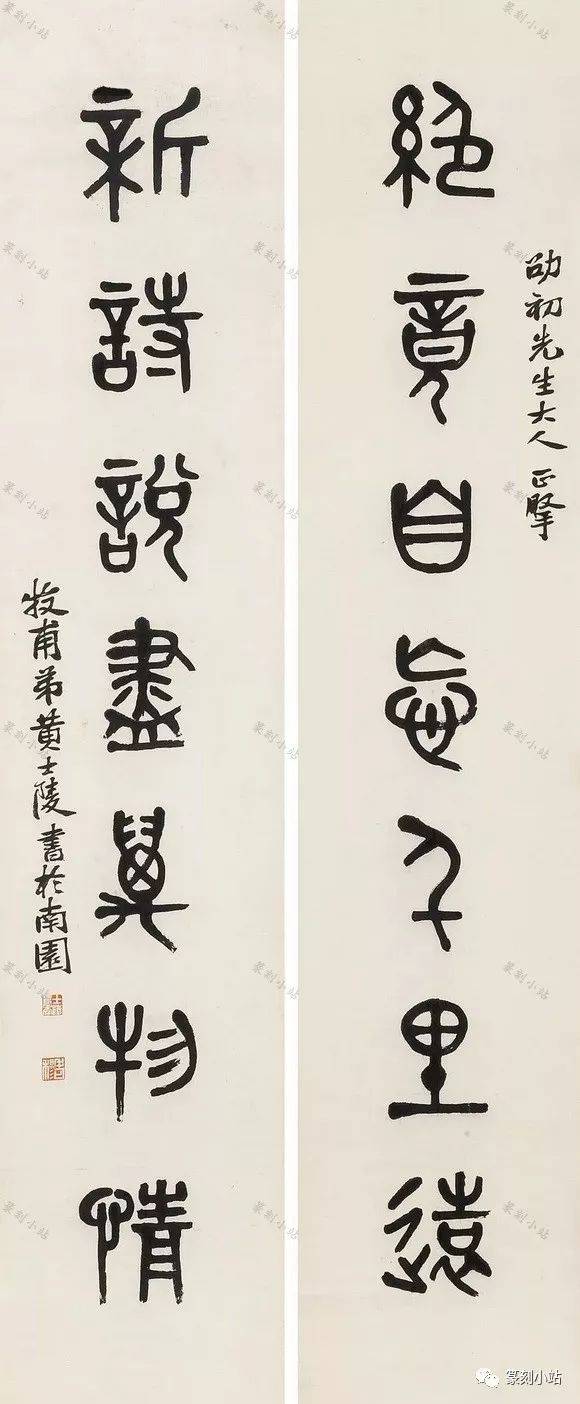 劭初先生大人正掔
絶竟自忘千里遠
新詩說盡萬物情
牧甫弟黃士陵書於南園
篆刻小站